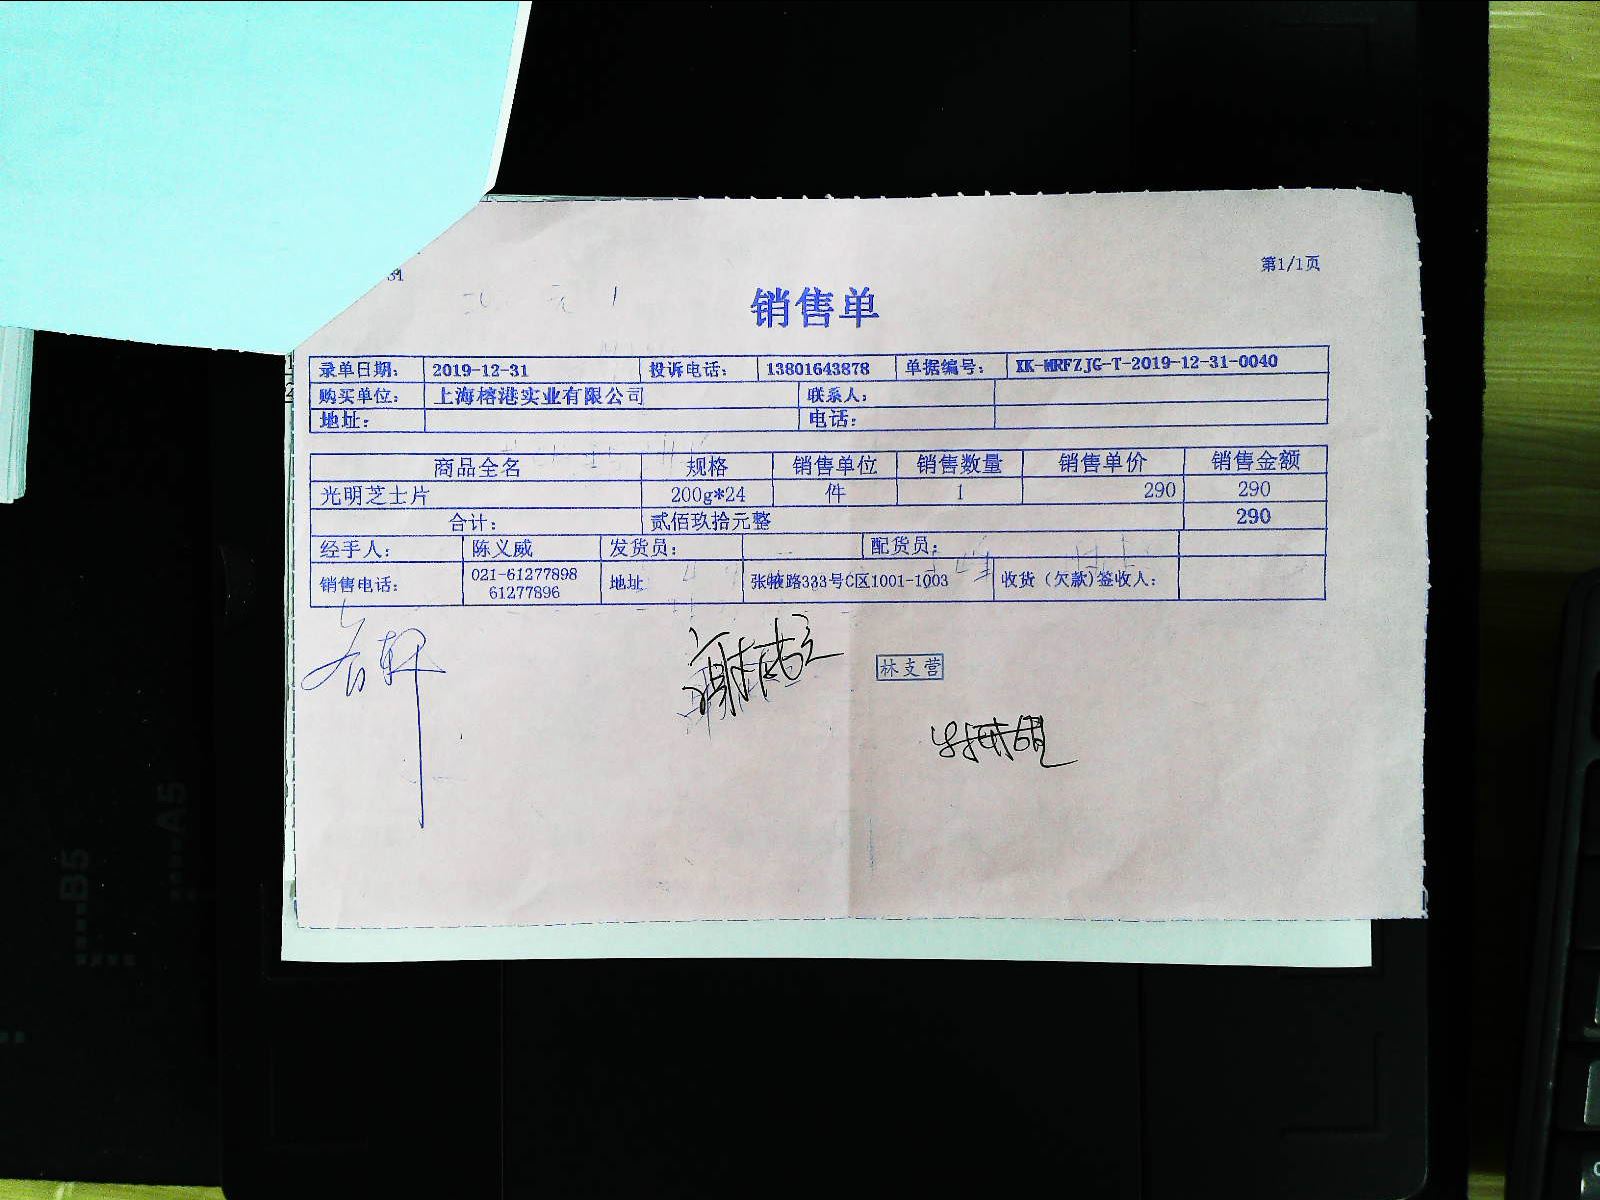 31
第1/1页
销售单
录单日期： 2019-12-31 投诉电话： 13801643878 单据编号： XK-MRFZJG-T-2019-12-31-0040
购买单位： 上海榕港实业有限公司 联系人：
地址： 电话：
商品全名 规格 销售单位 销售数量 销售单价 销售金额
光明芝士片 200g*24 件 1 290 290
合计： 贰佰玖拾元整 290
经手人： 陈义威 发货员： 配货员：
销售电话： 021-61277898 地址 张掖路333号C区1001-1003 收货（欠款)签收人：
61277896
林支营
B5
A5